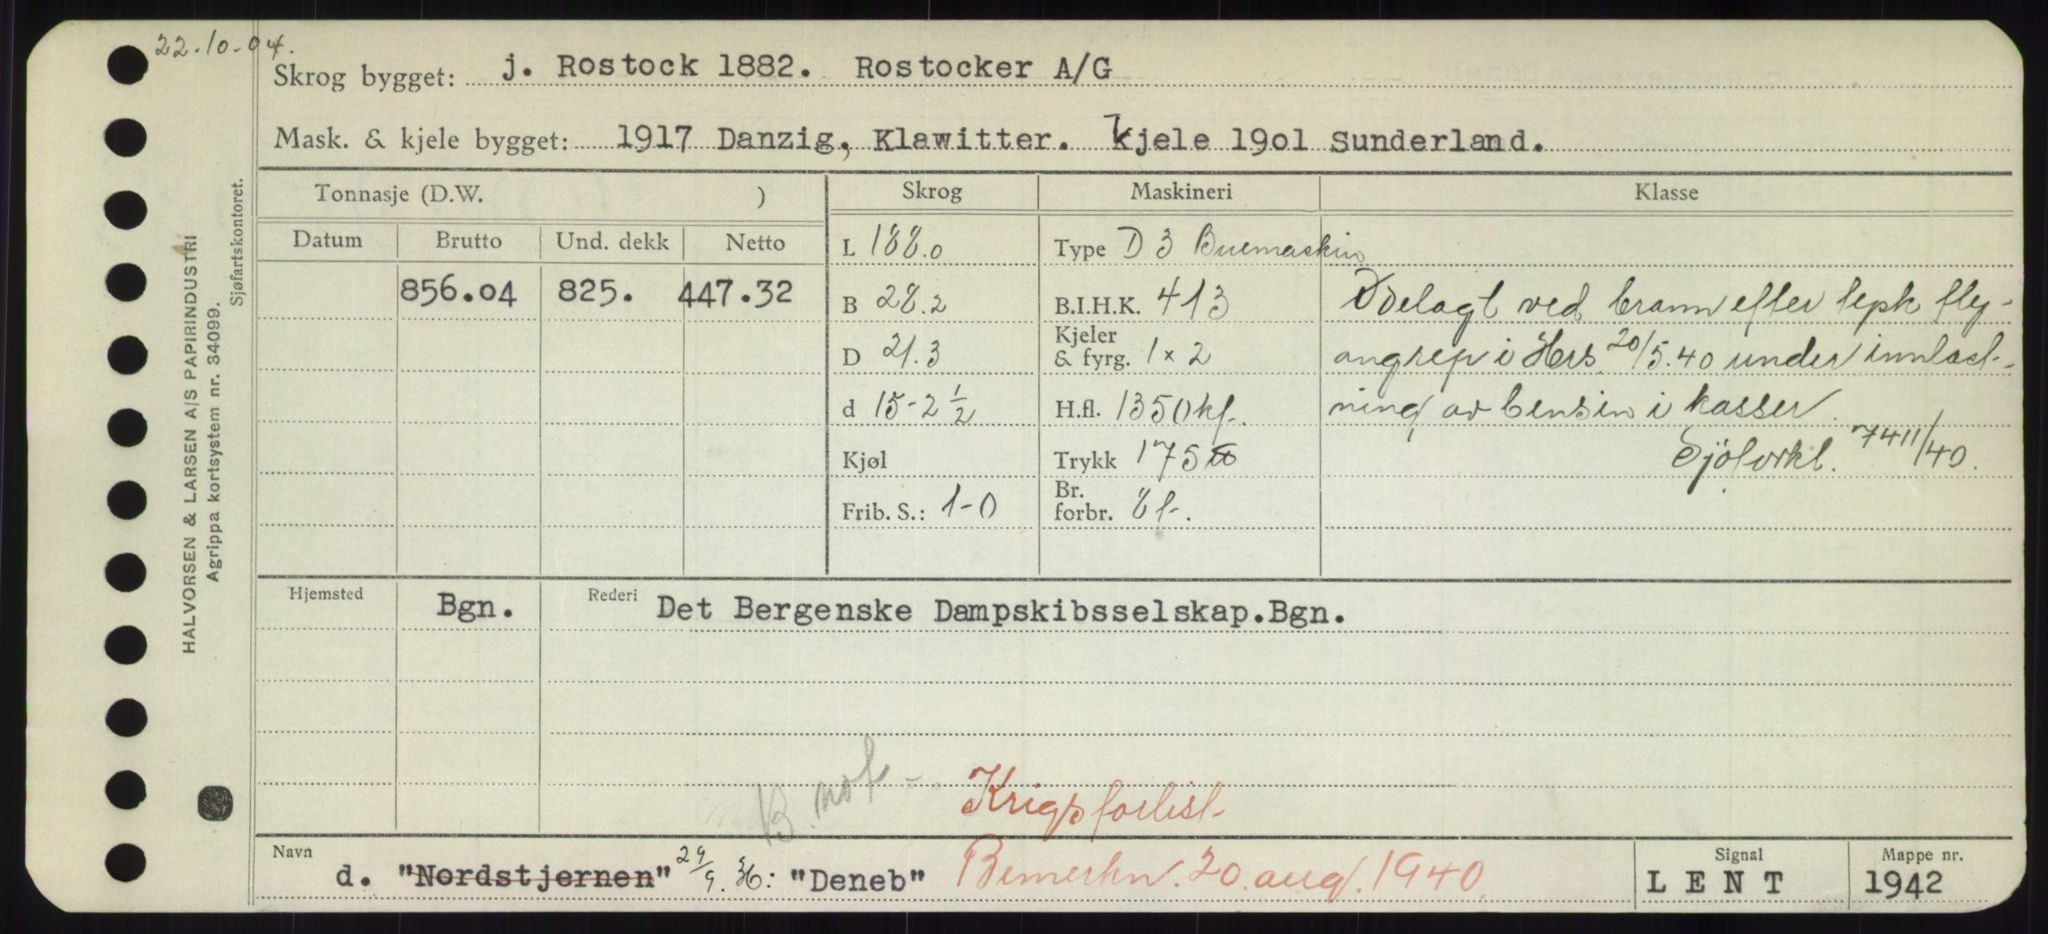 22.10.04.
Skrog bygget: j. Rostock 1882. Rostocker A/G
Mask. & kjele bygget: 1917 Danzig, Klawitter. kjele 1901 Sunderland.
Tonnasje (D.W. ) Skrog Maskineri Klasse
Datum Brutto Und. dekk Netto
L 188.0 Type D 3 Buemaskin
856.04 825. 447.32
B 28.2 B.I.H.K. 413 Ödelagt ved brann efter tysk fly-
D 21.3 Kjeler & fyrg. 1 x 2 angrep i Hers. 20/5.40 under innlast-
d 15-2 1/2 H.fl. 1350 kf. ning av bensin i kasser.
Kjøl Trykk 175 Sjöforkl. 7411/40.
Frib. S.: 1-0 Br. forbr. 8 t.
Hjemsted Bgn. Rederi Det Bergenske Dampskibsselskap.Bgn.
B. not Krigsforlist
Navn Signal Mappe nr.
d. "Nordstjernen" 29/9.36: "Deneb" Bemerkn. 20. aug. 1940. LENT 1942
HALVORSEN & LARSEN A/S PAPIRINDUSTRI
Agrippa kortsystem nr. 34099.
Sjøfartskontoret.